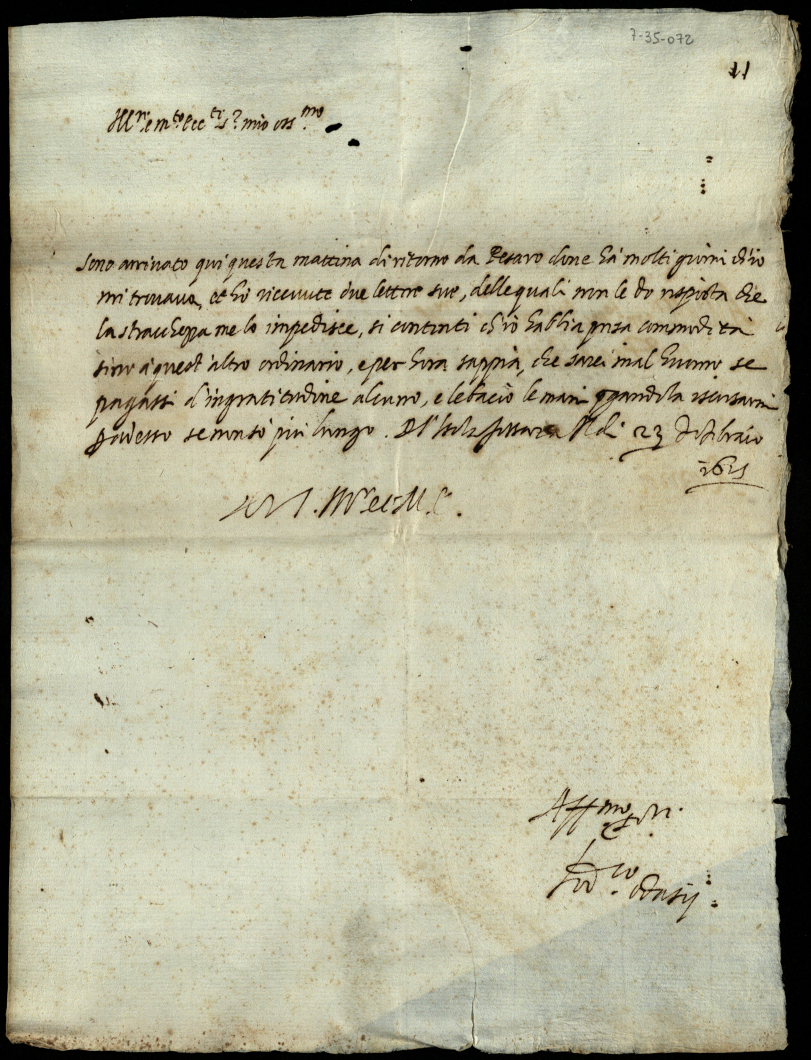 7-35-072
11
Ill.re e m.to Ecc.te s.r mio oss.mo
Sono arrivato qui questa mattina di ritorno da Pesaro dove hà molti giorni ch'io
mi trovava, et hò ricevute due lettere sue, delle quali non le dò risposta che
la stracchezza me lo impedisce, si contenti ch'io habbia presa commodità
sino à quest'altro ordinario, e per hora sappia, che sarei mal huomo se
pagassi d'ingratitudine alcuno, e le bacio le mani pregandola iscusarmi
se non sò più lungo. li 23 di febraio
1621
Aff.mo
Lod.co Odasij